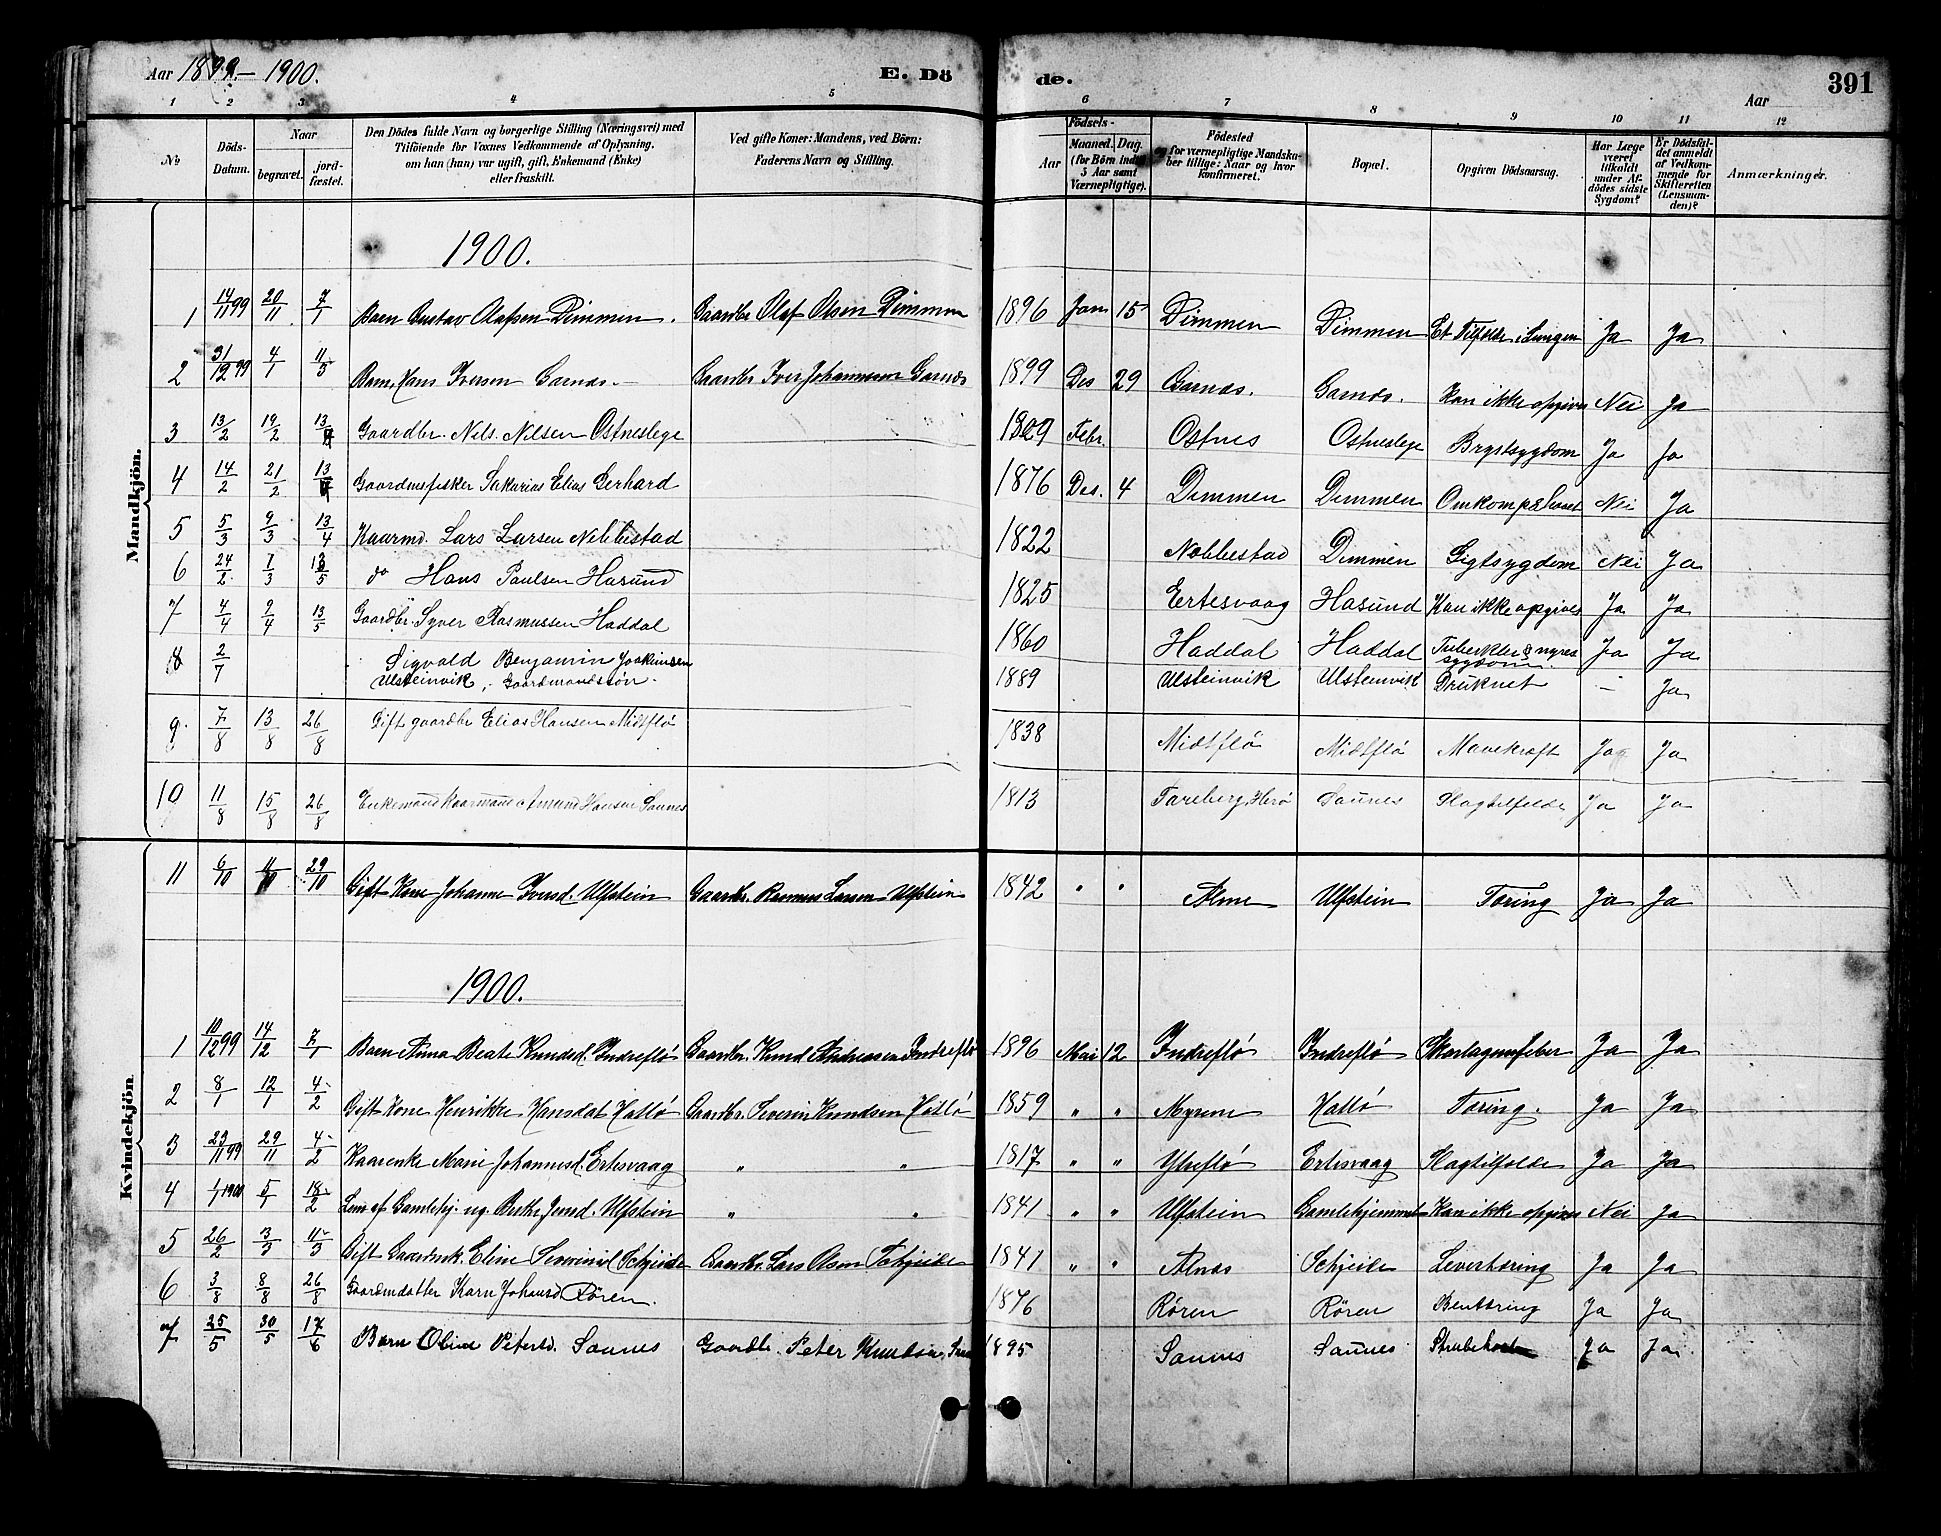 Aar 1899.–1900.
E. Dö
de.
Aar
391
1 2 3 4 5 6 7 8 9 10 11 12
No
Döds-Datum.
Naar
begravet.
jordfæstet.
Den Dödes fulde Navn og borgerlige Stilling (Næringsvei) med
Tilföiende for Voxnes Vedkommende af Oplysning,
om han (hun) var ugift, gift, Enkemand (Enke)
eller fraskilt.
Ved gifte Koner: Mandens, ved Börn:
Faderens Navn og Stilling.
Födsels-
Aar
Maaned. Dag.
(for Börn indtil 5 Aar samt Værnepligtige).
Födested
for værnepligtige Mandskaber tillige: Naar og hvor konfirmeret.
Bopæl.
Opgiven Dödsaarsag.
Har Læge været tilkaldt under Afdödes sidste Sygdom?
Er Dödsfaldet anmeldt af Vedkommende for Skifteretten (Lensmanden)?
Anmærkninger.
Mandkjön.
1900.
1 14/11 99 20/11 7/1 Barn Gustav Olafsen Dimmen. Gaardbr. Olaf Olsen Dimmen 1896 Jan 15 Dimmen Dimmen Et Tilfælde i Lungen Ja Ja
2 31/12 99 4/1 11/5 Barn Hans Iversen Garnæs. Gaardbr Iver Johannesen Garnæs 1899 Des 29 Garnæs. Garnæs. Kan ikke opgives Nei Ja
3 13/2 19/2 13/4 Gaardbr. Nils Nilsen Ostneslege Febr. Ostnes Ostneslege Brystsygdom Ja Ja
4 14/2 21/2 13/4 Gaardmsfisker Sakarias Elias Gerhard 1876 Des. 4 Dimmen Dimmen Omkom på havet Nei Ja
5 5/3 9/3 13/4 Kaarmd. Lars Larsen Nebbestad 1822 Nebbestad Dimmen Gigtsygdom Nei Ja
6 24/2 1/3 13/5 do Hans Paulsen Hasund 1825 Ertesvaag Hasund Kan ikke opgives Ja Ja
7 4/4 9/4 13/5 Gaardbr. Syver Rasmussen Haddal 1860 Haddal Haddal Tuberkler & nyresygdom Ja Ja
8 2/7 Sigvald Benjamin Joakimsen
Ulsteinvik, Gaardmandssøn. 1889 Ulsteinvik Ulsteinvik Druknet – Ja
9 7/8 13/8 26/8 Gift gaardbr Elias Hansen Midtflø 1838 Midtflø Midtflø Mavekræft Ja Ja
10 11/8 15/8 26/8 Enkemand kaarmand Amund Hansen Saunes 1813 Tareberg, Herø Saunes Slagtilfælde Ja Ja
11 6/10 11/10 29/10 Gift Kone Johanne Iversd. Ulfstein Gaardbr. Rasmus Larsen Ulfstein 1842 " " Alme Ulfstein Tæring Ja Ja
Kvindekjön
1900.
1 10/12 99 14/12 7/1 Barn Anna Beate Knudsd. Indreflø Gaardbr. Knud Andreasen Indreflø 1896 Mai 12 Indreflø Indreflø Skarlagensfeber Ja Ja
2 8/1 12/1 4/2 Gift Kone Henrikke Hansdat Hatlø Gaardbr Severin Knudsen Hatlø 1859 " " Myrene Hatlø Tæring. Ja Ja
3 23/11 99 29/11 4/2 Kaarenke Marie Johannesd. Ertesvaag " " 1817 " " Ytreflø Ertesvaag Slagtilfælde Ja Ja
4 1/1 1900 5/1 18/2 Lem af Gamlehj. ug. Berte Jensd. Ulfstein " " 1841 " " Ulfstein Gamlehjemmet Kan ikke opgives Nei Ja
5 26/2 3/3 11/3 Gift Gaardmk. Eline Severinsd. Schjeide Gaardbr. Lars Olsen Schjeide 1841 " " Alnæs Schjeide Levertæring Ja Ja
6 3/8 8/8 26/8 Gaardmdatter Karn Johansd Røren. 1846 Røren Røren Bentæring Ja Ja
7 25/5 30/5 17/6 Barn Oline Petersd. Saunes Gaardbr. Peter Knudsen 1895 Saunes Saunes Strubehoste Ja Ja